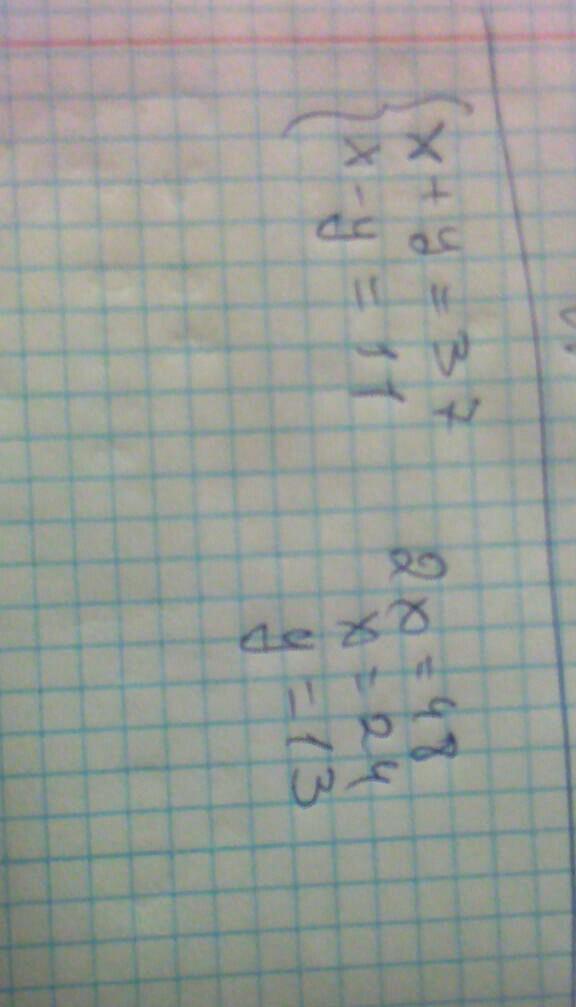 x + y = 37
x - y = 11
2x = 48
x = 24
y = 13